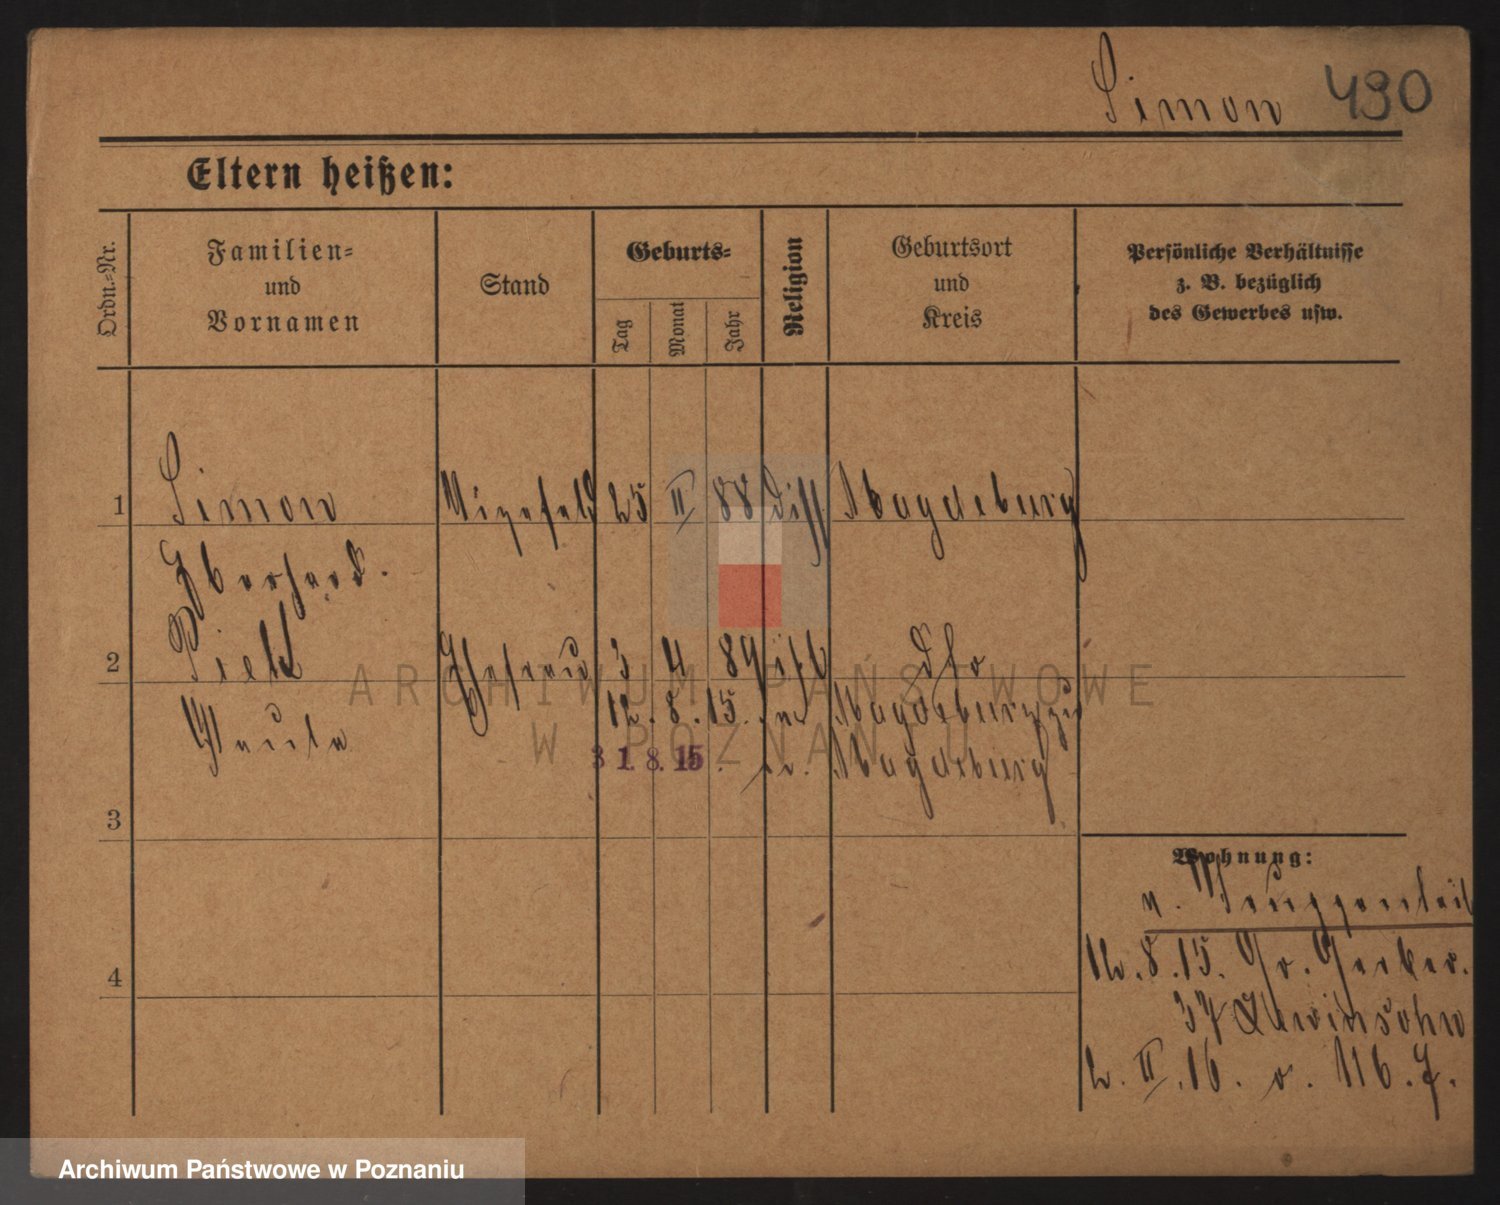 Simon 490
Eltern heißen:
Ordn.=Nr.
Familien=
und
Vornamen
Stand
Geburts=
Tag
Monat
Jahr
Religion
Geburtsort
und
Kreis
Persönliche Verhältnisse
z. B. bezüglich
des Gewerbes usw.
1 Simon Vizefeld 25 II 88 diss. Magdeburg
Eberhard.
2 Ehefrau 3 4 89 dto
Paula 12. 8. 15. Magdeburg zu
31. 8. 15. Magdeburg
3
Wohnung:
n. Truppenteil
12. 8. 15. Gr. Gerber.
4
37 Lewinsohn
2. II. 16. v. 116. J.
ARCHIWUM PAŃSTWOWE
W POZNANIU
Archiwum Państwowe w Poznaniu